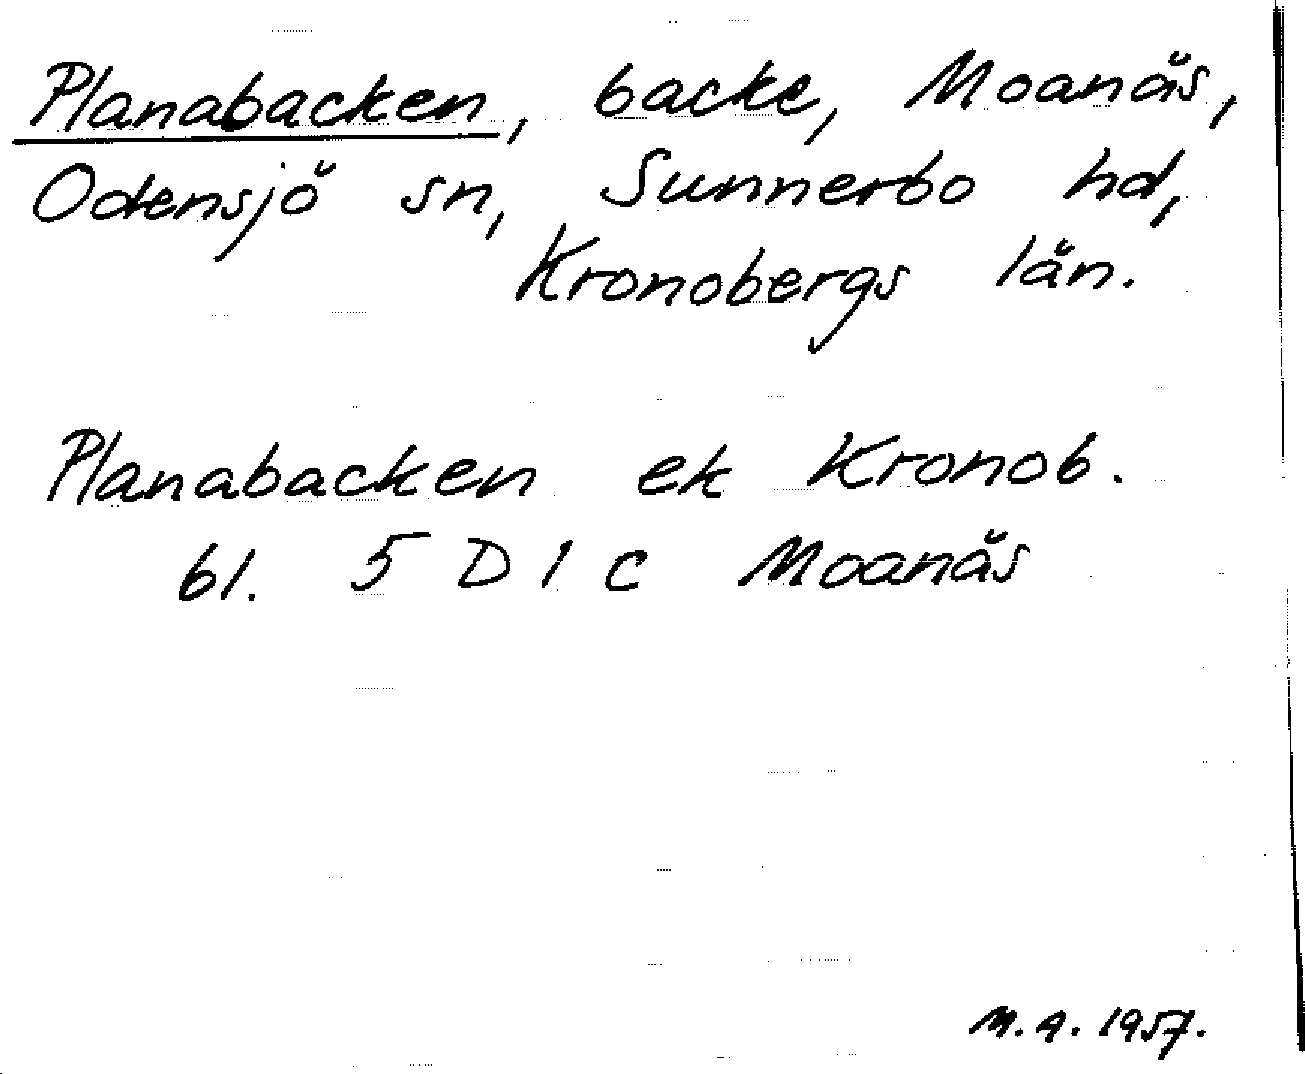 Planabacken, backe, Moanäs,
Odensjö sn, Sunnerbo hd,
Kronobergs län.
Planabacken ek Kronob.
bl. 5 D 1 c Moanäs
M.A. 1957.